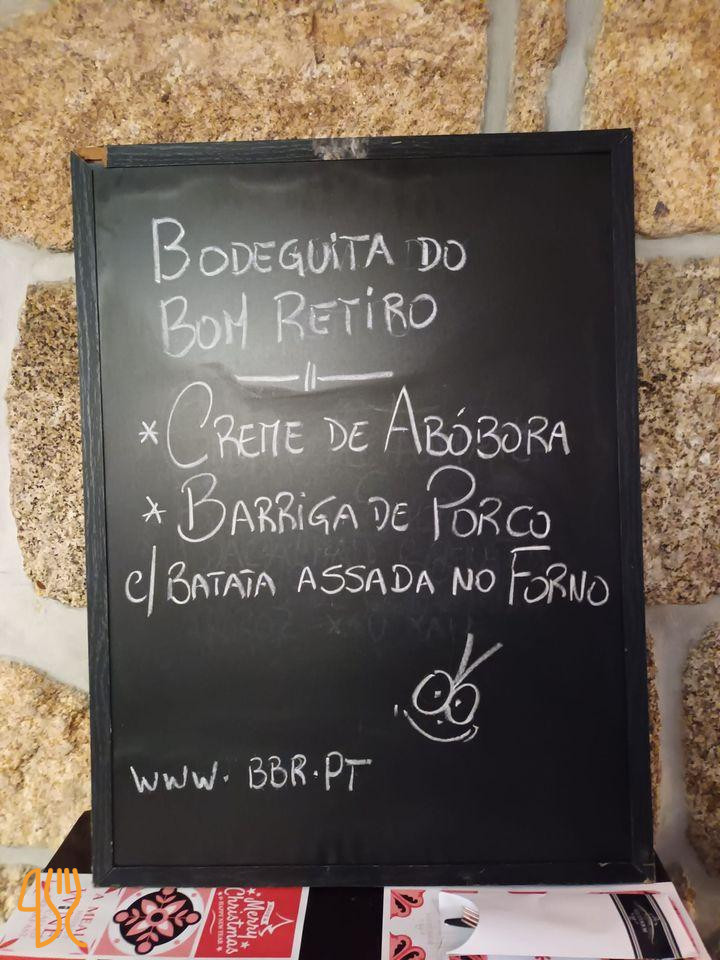 BODEGUITA DO
BOM RETIRO
* CREME DE ABÓBORA
* BARRIGA DE PORCO
c/ BATATA ASSADA NO FORNO
WWW.BBR.PT
A MEAL
Merry
Christmas
HAPPY NEW YEAR